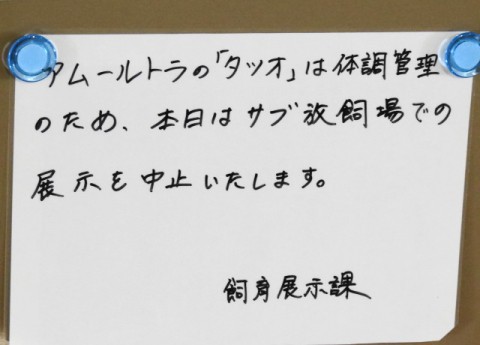 アムールトラの「タツオ」は体調管理
のため、本日はサブ放飼場での
展示を中止いたします。
飼育展示課